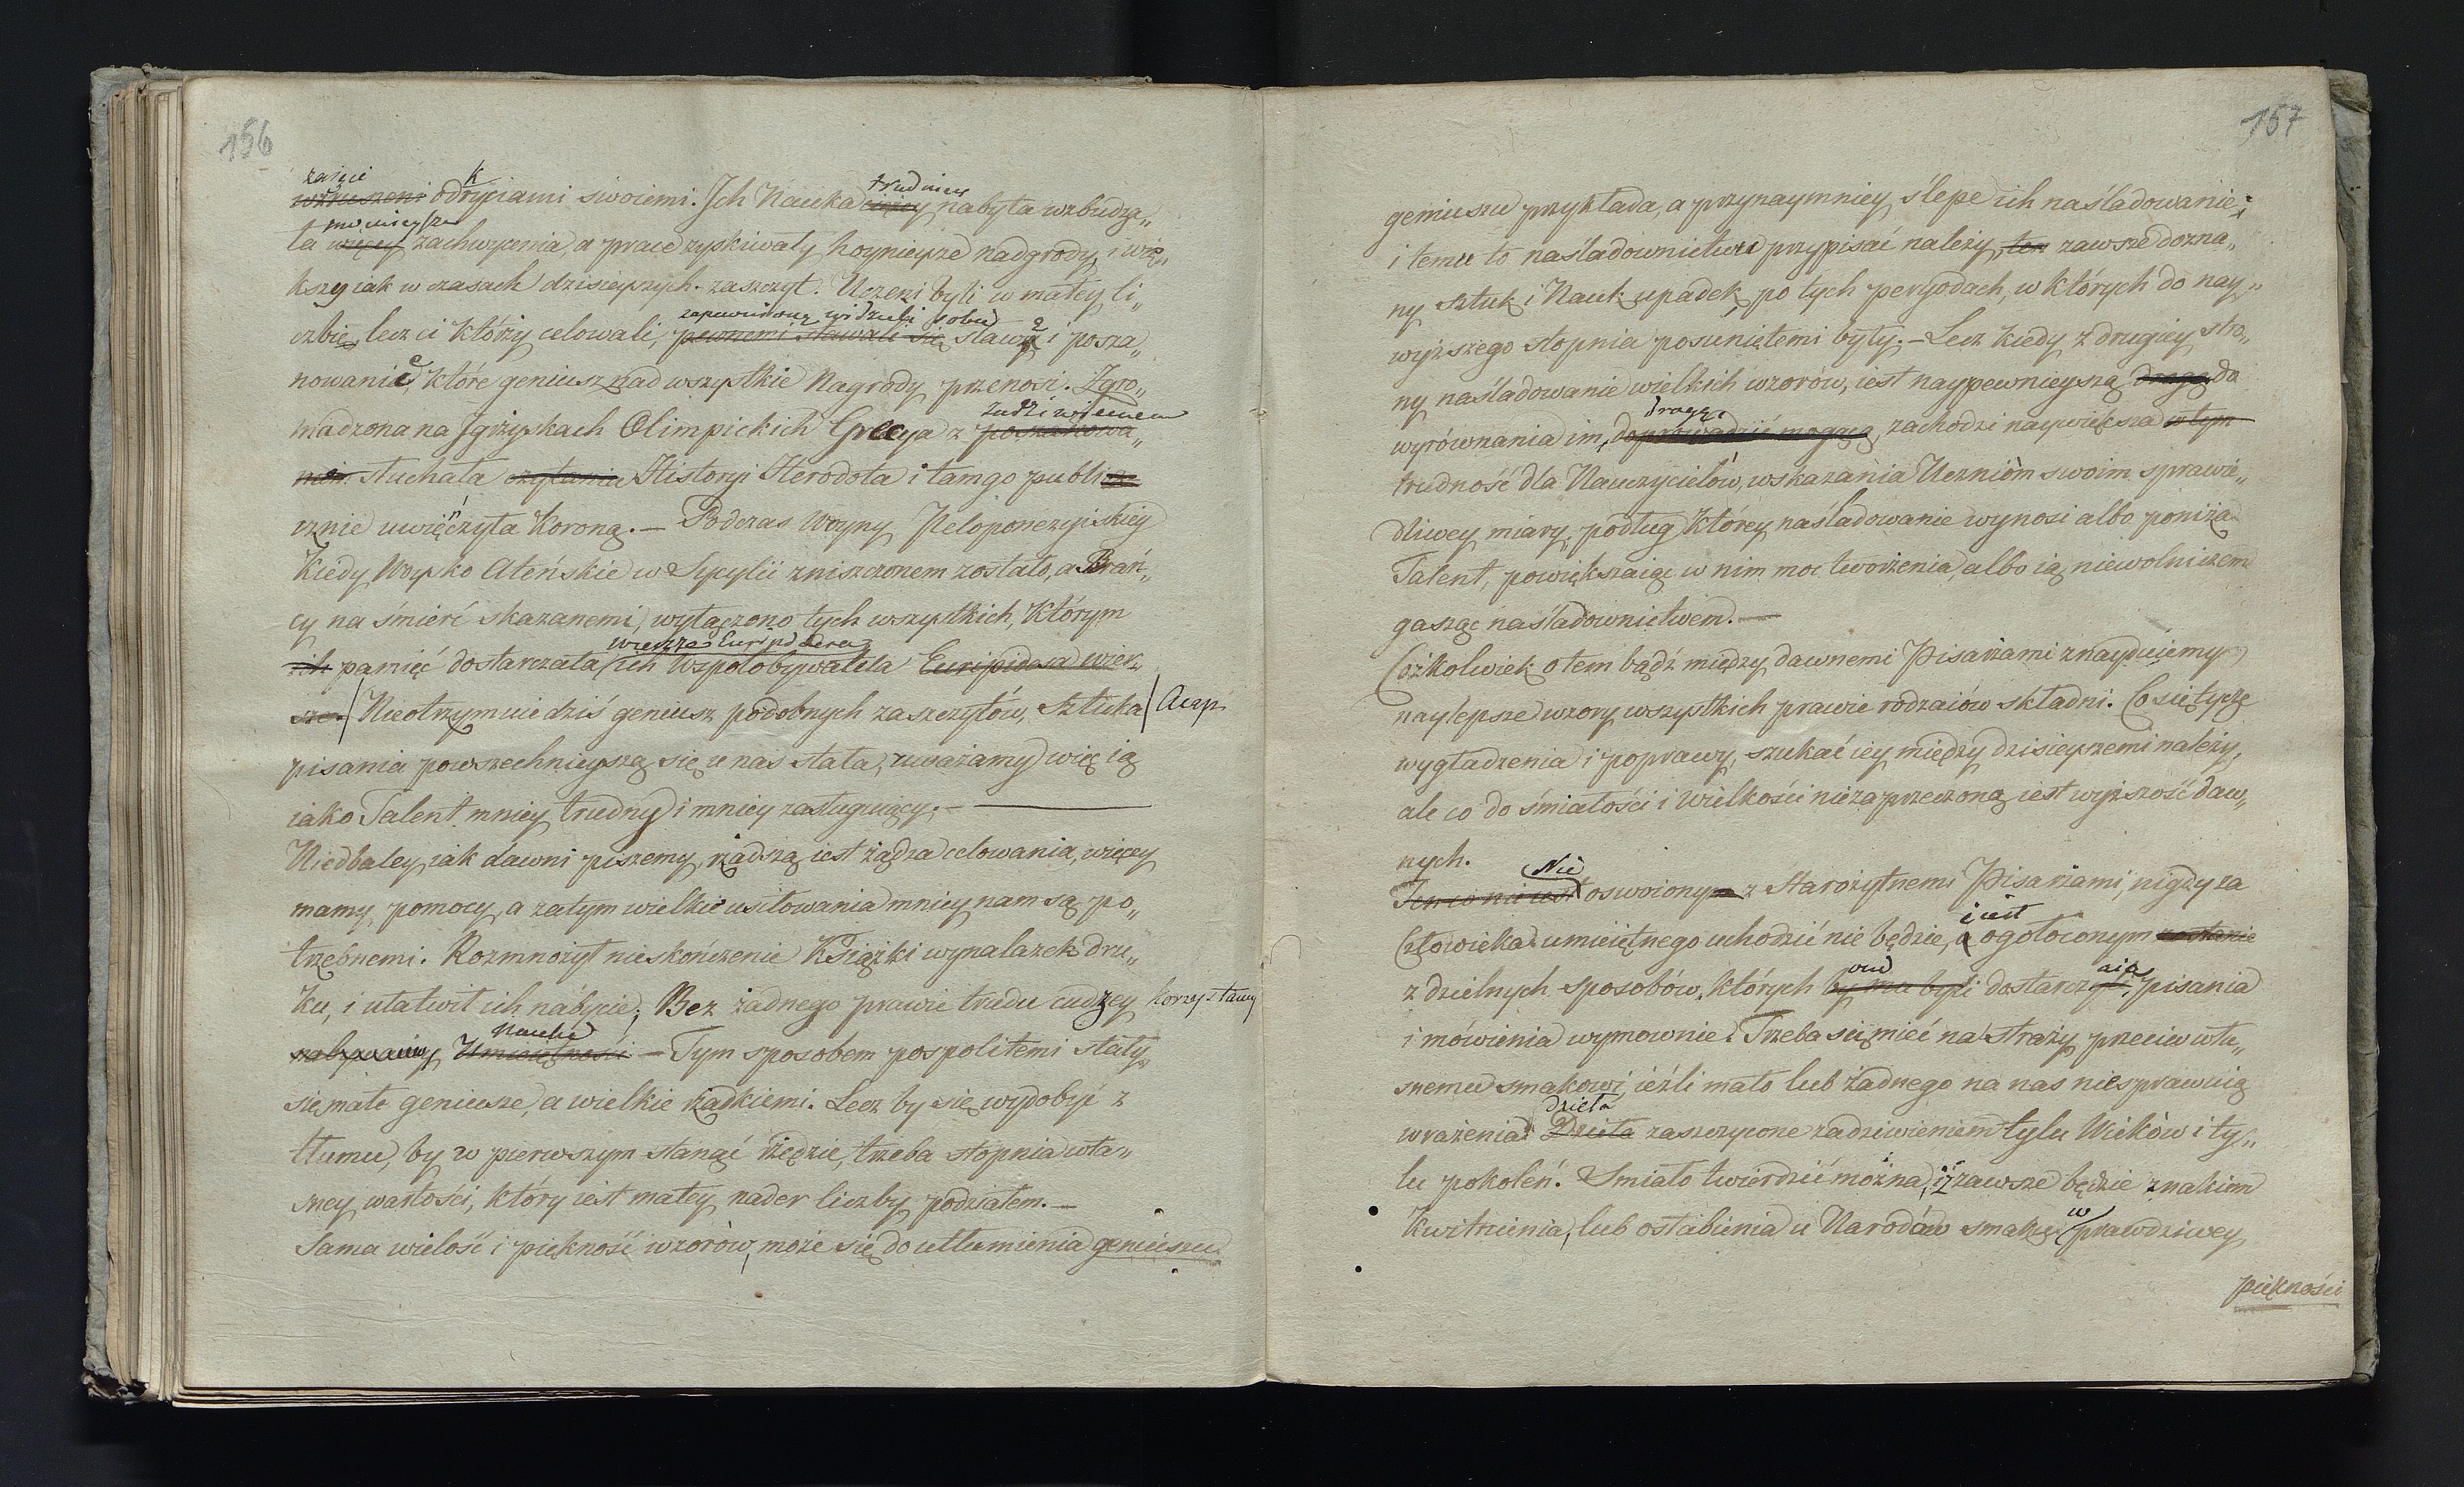 156
zajęci
K
trudniey
wzruszeni odryciami swoiemi. Jch Nauka ciężey nabyta wzbudza„
mocnieysze
ła więcey zachwycenia, a prace zyskiwały hoynieysze nadgrody, i wię„
kszy iak w czasach dzisieyszych zaszczyt. Uczeni byli w małey li„
zapewnioną widzieli sobie
czbie, lecz ci którzy celowali, pewnemi stawali się sławy i posza„
nowanie, które geniusz nad wszystkie Nagrody przenosi. Zgro„
zadziwieniem
madzona na Jgrzyskach Olimpickich Grecya z poszanowa„
niem słuchała czytania Historyi Herodota i tam go publi
cznie uwięńczyła Koroną. — Podczas Woyny Peloponezyiskiey
Kiedy Woysko Ateńskie w Sycylii zniszczonem zostało, a Brań„
cy na śmierć skazanemi, wyłączono tych wszystkich, którym
wiersze Euripidesa
ich pamięć dostarczała ich Wspołobywatela Euripidesa wier„
sze. Nieotrzymuie dziś geniusz podobnych zaszczytów, Sztuka
pisania powszechnieyszą się u nas stała, uważamy więc ią
iako Talent mniey trudny i mniey zasługuiący. —
Niedbaley iak dawni piszemy, rzadszą iest żądza celowania, więcey
mamy pomocy, a zatym wielkie usiłowania mniey nam są po„
trzebnemi. Rozmnożył nieskończenie Książki wynalazek dru„
ku, i ułatwił ich nabycie; Bez żadnego prawie trudu cudzey korzystamy
Nauki
nabywamy Umieiętności — Tym sposobem pospolitemi stały
się małe geniusze, a wielkie rzadkiemi. Lecz by się wydobyć z
tłumu, by w pierwszym stanąć rzędzie, trzeba stopnia wła„
sney wartości, który iest małey nader liczby podziałem. —
Sama wielość i piękność wzorów, może się do utłumienia geniuszu
157
geniuszu przykłada, a przynaymniey ślepe ich naśladowanie;
i temu to naśladownictwu przypisać należy, ten zawsze dozna„
ny sztuk i Nauk upadek, po tych peryodach, w których do nay„
wyższego stopnia posuniętemi były. — Lecz kiedy z drugiey stro„
ny naśladowanie wielkich wzorów, iest naypewnieyszą drogą do
drogą
wyrównania im, doprowadzić mogącą, zachodzi naywiększa w tym
trudność dla Nauczycielów, wskazania Uczniòm swoim sprawie„
dliwey miary, podług którey naśladowanie wynosi albo poniża
Talent, powiększaiąc w nim moc tworzenia, albo ią niewolniczem
gasząc naśladownictwem. —
Cożkolwiek o tem bądź między dawnemi Pisarzami znayduiemy
naylepsze wzory wszystkich prawie rodzaiów składni. Co się tycze
wygładzenia i poprawy, szukać iey między dzisieyszemi należy,
ale co do śmiałości i Wielkości niezaprzeczoną iest wyższość daw„
nych.
Nie
Ten co nie iest oswoionym z Starożytnemi Pisarzami, nigdy za
i iest
Człowieka umieiętnego uchodzić nie będzie, a ogołoconym zostanie
oni
aią
z dzielnych sposobów, których by mu byli dostarczyli, pisania
i mówienia wymownie. Trzeba się mieć na Straży przeciw wła„
snemu smakowi, ieźli mało lub żadnego na nas niesprawuią
dzieła
wrażenia Dzieła zaszczycone zadziwieniem tylu Wieków i ty„
lu pokoleń. Smiało twierdzić można, iż zawsze będzie znakiem
w
Kwitnienia, lub osłabienia u Narodów smaku prawdziwey
piękności